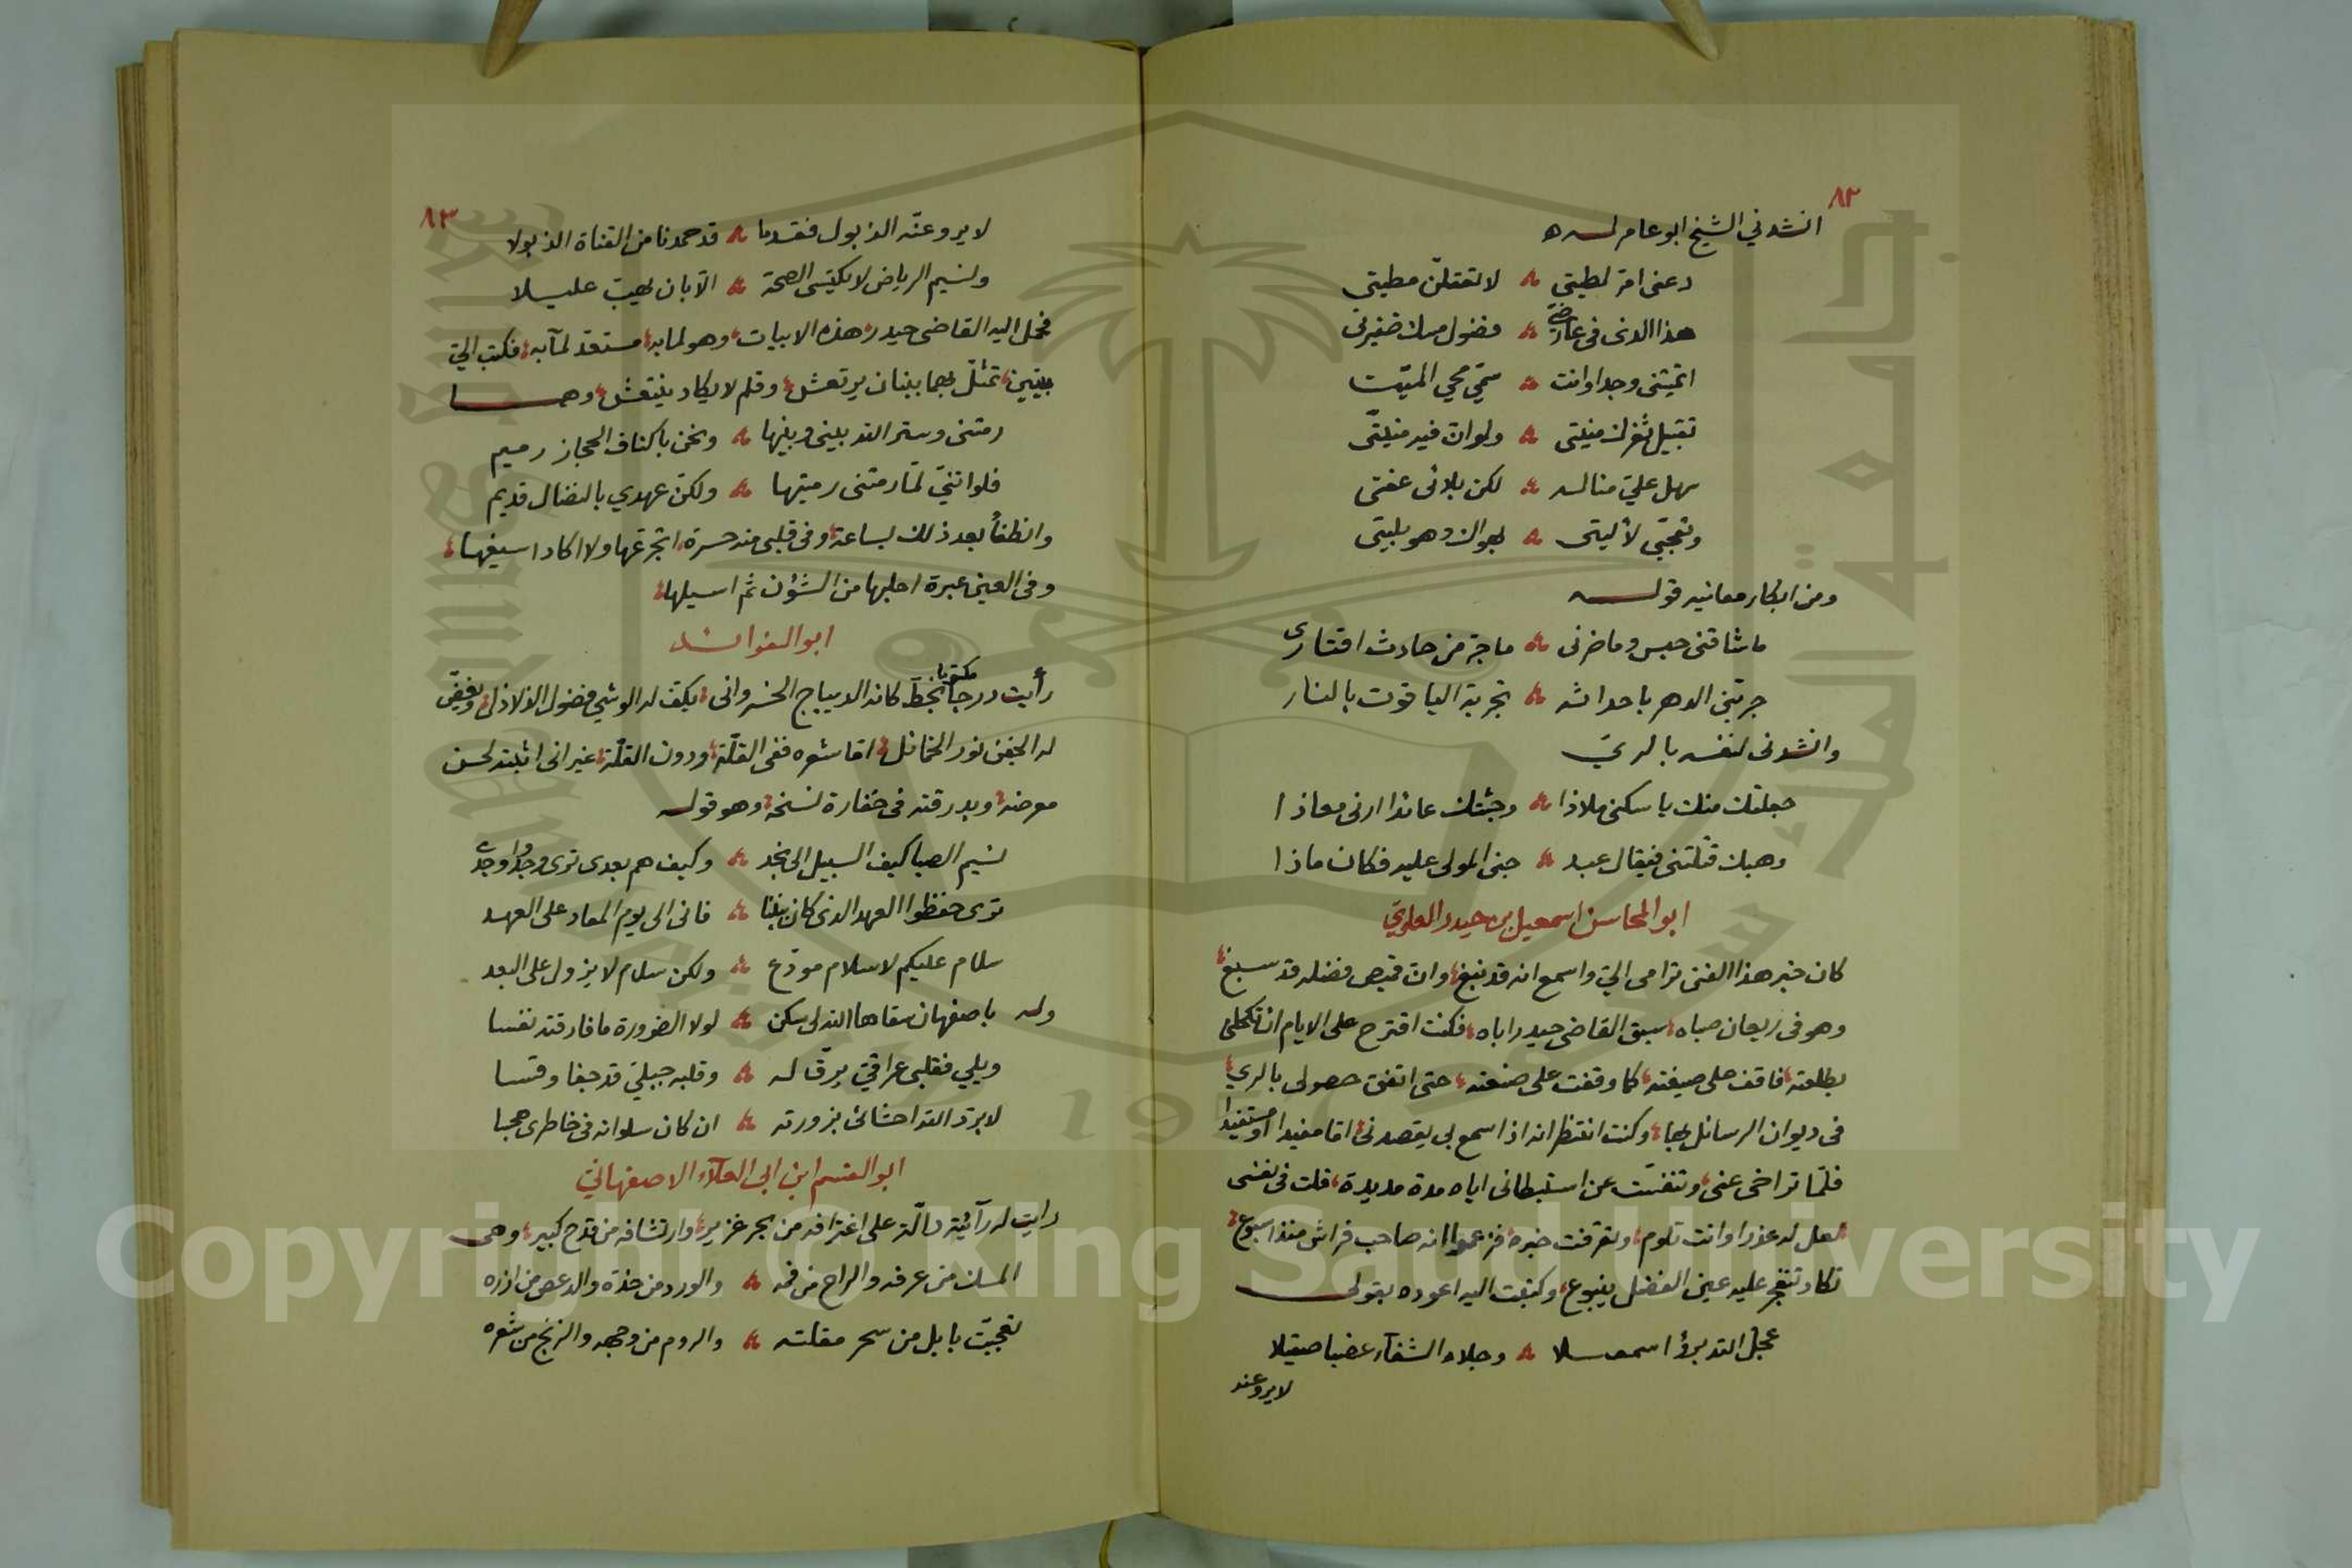 ٨٢
انشدني الشيخ ابو عامر لـه
دعنى امر لطيتى ۞ لا تعقلنّ مطيتى
هذا الذى فى عارضىّ ۞ فضول مسك ضفيرتى
اتميتنى وجدا وانت ۞ سميّ محي الميّت
تقبيل ثغرك منيتى ۞ ولو انّ فيه منيّتى
سهل عليّ مناله ۞ لكن بلائى عفتى
وتجنّبى لأليتى ۞ بهواك وهو بليتى
ومن ابكار معانيه قولـه
ما شاقنى حبس وما ضرنى ۞ ما جر من حادث اقتارى
جربنى الدهر باحداثه ۞ تجربة الياقوت بالنار
وانشدنى لنفسه بالريّ
جعلتك منك يا سكنى ملاذا ۞ وجئتك عائذا ارنى معاذا
وهبك قتلتنى فيقال عبد ۞ جنى المولى عليه فكان ماذا
ابو المحاسن اسمعيل بن حيدر العلويّ
كان خبر هذا الفتى ترامى اليّ واسمع انه قد نبغ وانّ قميص فضله قد سبغ
وهو فى ريعان صباه سبق القاضى حيدرا اباه فكنت اقترح على الايام ان تكحلنى
بطلعته فاقف على صيغته كما وقفت على صنعته حتى اتفق حصولى بالري
فى ديوان الرسائل بها وكنت انتظر انه اذا سمع بى يقصدنى اما مفيدا او مستفيدا
فلمّا تراخى عنى وتنفّست عن استبطائى اياه مدة مديدة قلت فى نفسى
لعل له عذرا وانت تلوم وتعرفت خبره فزعموا انه صاحب فراش منذ اسبوع
تكاد تنفجر عليه عين الفضل ينبوع وكتبت اليه اعوده بقولى
عجل الله برؤ اسمعيلا ۞ وجلاه الشفآء عضبا صقيلا
لا يروعنه
٨٣
لا يروعنّه الذبول فقدما ۞ قد حمدنا من القناة الذبولا
ونسيم الرياض لا يكتسى الصحة ۞ الاّ بان يهبّ عليـلا
فحمل اليه القاضى حيدر هذه الابيات وهو لما به مستعد لمآبه فكتب اليّ
بيتين تمثلّ بهما ببنان يرتعش وقلم لا يكاد ينتعش وهما
رمتنى وستر الله بينى وبينها ۞ ونحن باكناف الحجاز رميم
فلو انّنيّ لمّا رمتنى رميتها ۞ ولكنّ عهدي بالنضال قديم
وانطفأ بعد ذلك بساعة وفى قلبى منه حسرة اتجرعها ولا اكاد اسيغها
وفى العين عبرة احلبها من الشؤن ثم اسيلها
ابو الفوائد
رأيت درجا مكتوبا بخطّ كانه الديباج الخسروانى يكف له الوشي فضول الذلاذل ويغض
له الجفن نور الخمائل اما شعره ففى القلّة ودون القلّة غير انى اثبته لحسن
معرضه وبدرقته فى خفارة نسخه وهو قولـه
نسيم الصبا كيف السبيل الى نجد ۞ وكيف هم بعدى ترى وجدوا وجدى
ترى حفظوا العهد الذى كان بيننا ۞ فانى الى يوم المعاد على العهـد
سلام عليكم لا سلام مودّع ۞ ولكن سلام لا يزول على البعد
وله باصفهان سقاها الله لى سكن ۞ لولا الضرورة ما فارقته نفسا
ويلي فقلبى عراقيّ يرقّ له ۞ وقلبه جبليّ قد جفا وقسا
لا برد الله احشائى بزورته ۞ ان كان سلوانه فى خاطرى هجسا
ابو القسم ابن ابى العلآء الاصفهانيّ
رايت له رآئية دالّة على اغترافه من بحر غزير وارتشافه من قدح كبير وهى
المسك من عرفه والراح من فمه ۞ والورد من خدّه والدعص من ازره
تعجبّت بابل من سحر مقلته ۞ والروم من وجهه والزنج من شعره